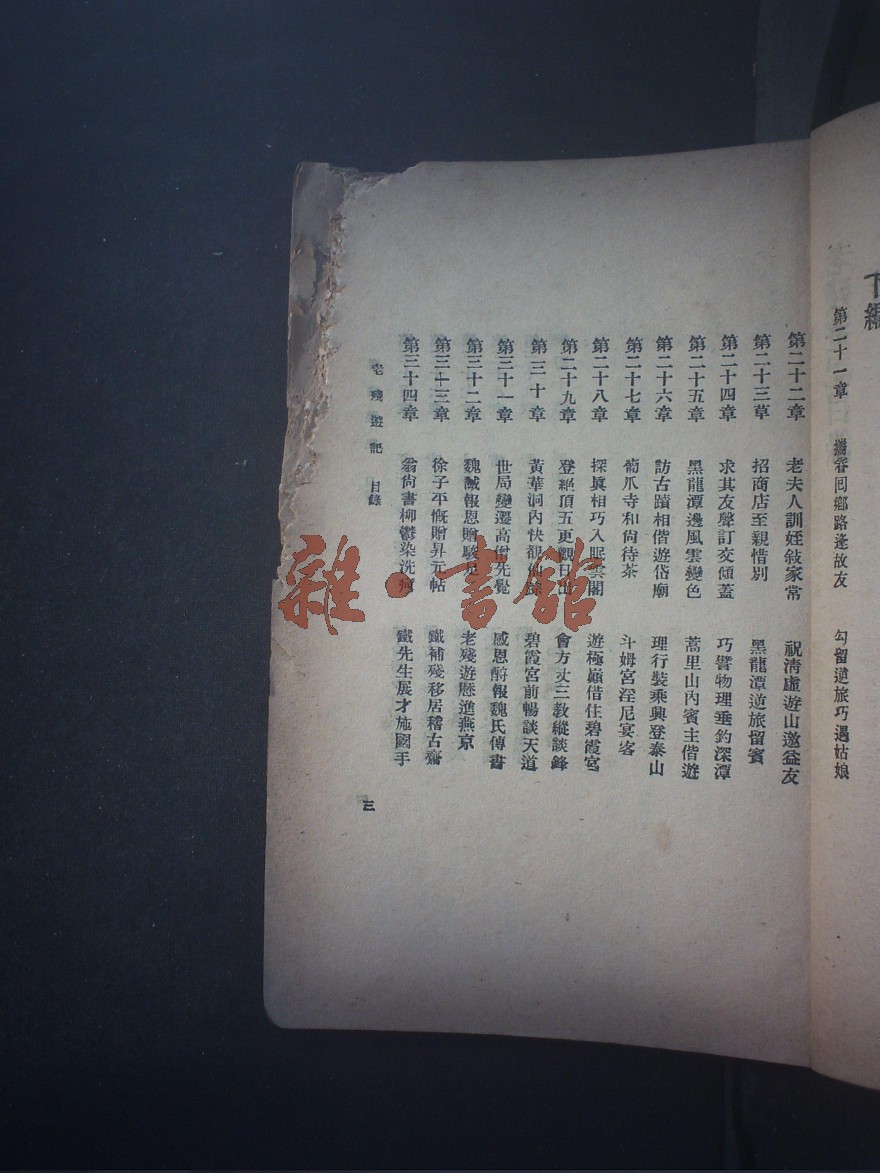 下編
第二十一章 攜眷回鄉路逢故友 勾留逆旅巧遇姑娘
第二十二章 老夫人訓姪敍家常 祝清虛遊山邀益友
第二十三草 招商店至親惜別 黑龍潭逆旅留賓
第二十四章 求其友聲訂交傾蓋 巧譬物理垂釣深潭
第二十五章 黑龍潭邊風雲變色 蒿里山內賓主偕遊
第二十六章 訪古蹟相偕遊岱廟 理行裝乘興登泰山
第二十七章 萄爪寺和尙待茶 斗姆宮淫尼宴客
第二十八章 探眞相巧入眠雲閣 遊極巔借住碧霞宮
第二十九章 登絕頂五更觀日出 會方丈三敎縱談鋒
第三十章 黃華洞內快覩仙蹤 碧霞宮前暢談天道
第三十一章 世局變遷高僧先覺 感恩酬報魏氏傳書
第三十二章 魏誠報恩贈駿足 老殘遊歷進燕京
第三十三章 徐子平慨贈昇元帖 鐵補殘移居稽古齋
第三十四章 翁尙書柳鬱染洗疴 鐵先生展才施國手
老殘遊記 目錄
三
雜·書館